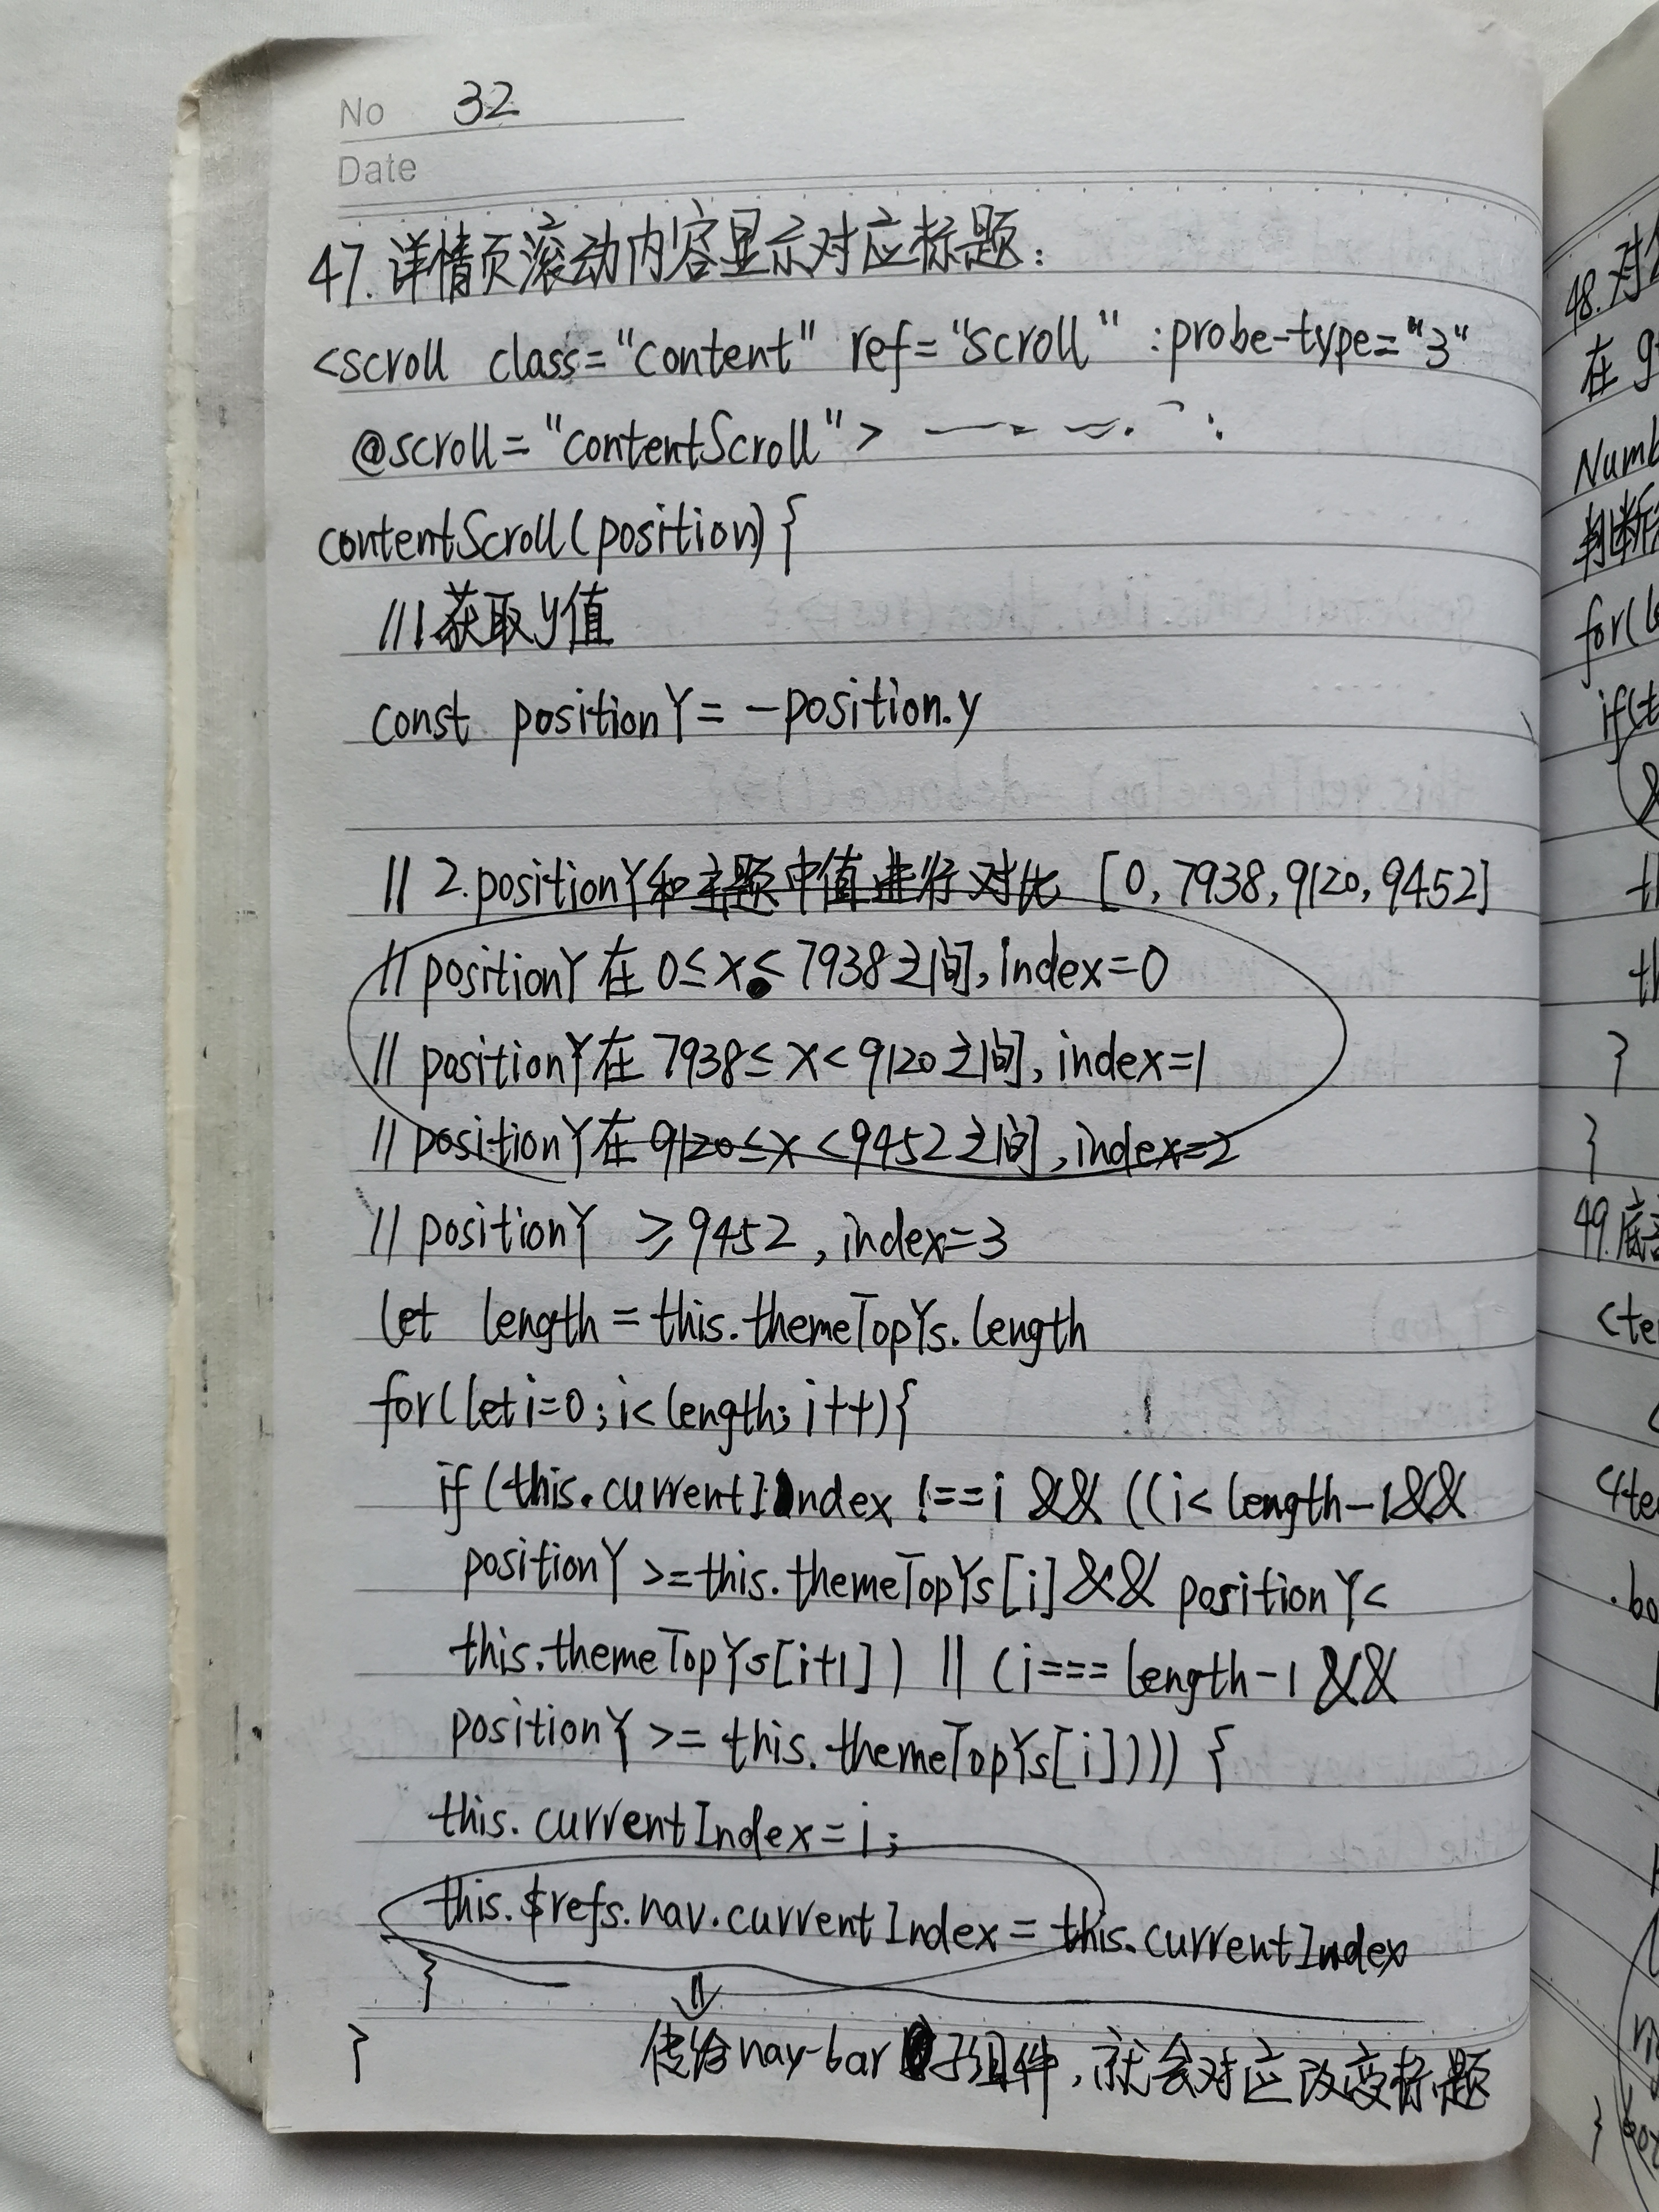 No 32
Date
47.详情页滚动内容显示对应标题:
<scroll class="content" ref="scroll" :probe-type="3"
@scroll="contentScroll">
contentScroll(position){
//1获取y值
const positionY=-position.y
// 2.positionY和主题中值进行对比 [0,7938,9120,9452]
// positionY在0≤x≤7938之间,index=0
// positionY在 7938≤x<9120之间,index=1
// positionY在9120≤x<9452之间,index=2
// positionY ≥9452,index=3
let length=this.themeTopYs.length
for(let i=0;i<length;i++){
if(this.currentIndex !==i && ((i<length-1&&
positionY >=this.themeTopYs[i]&& positionY<
this.themeTopYs[i+1]) || (i===length-1 &&
positionY >= this.themeTopYs[i]))) {
this.currentIndex=i;
this.$refs.nav.currentIndex=this.currentIndex
}
}
传给nav-bar子组件,就会对应改变标题
48.对
在g
Numb
判断
for(le
if(t
&
th
th
}
}
49.底
<te
<
<te
.bo
}